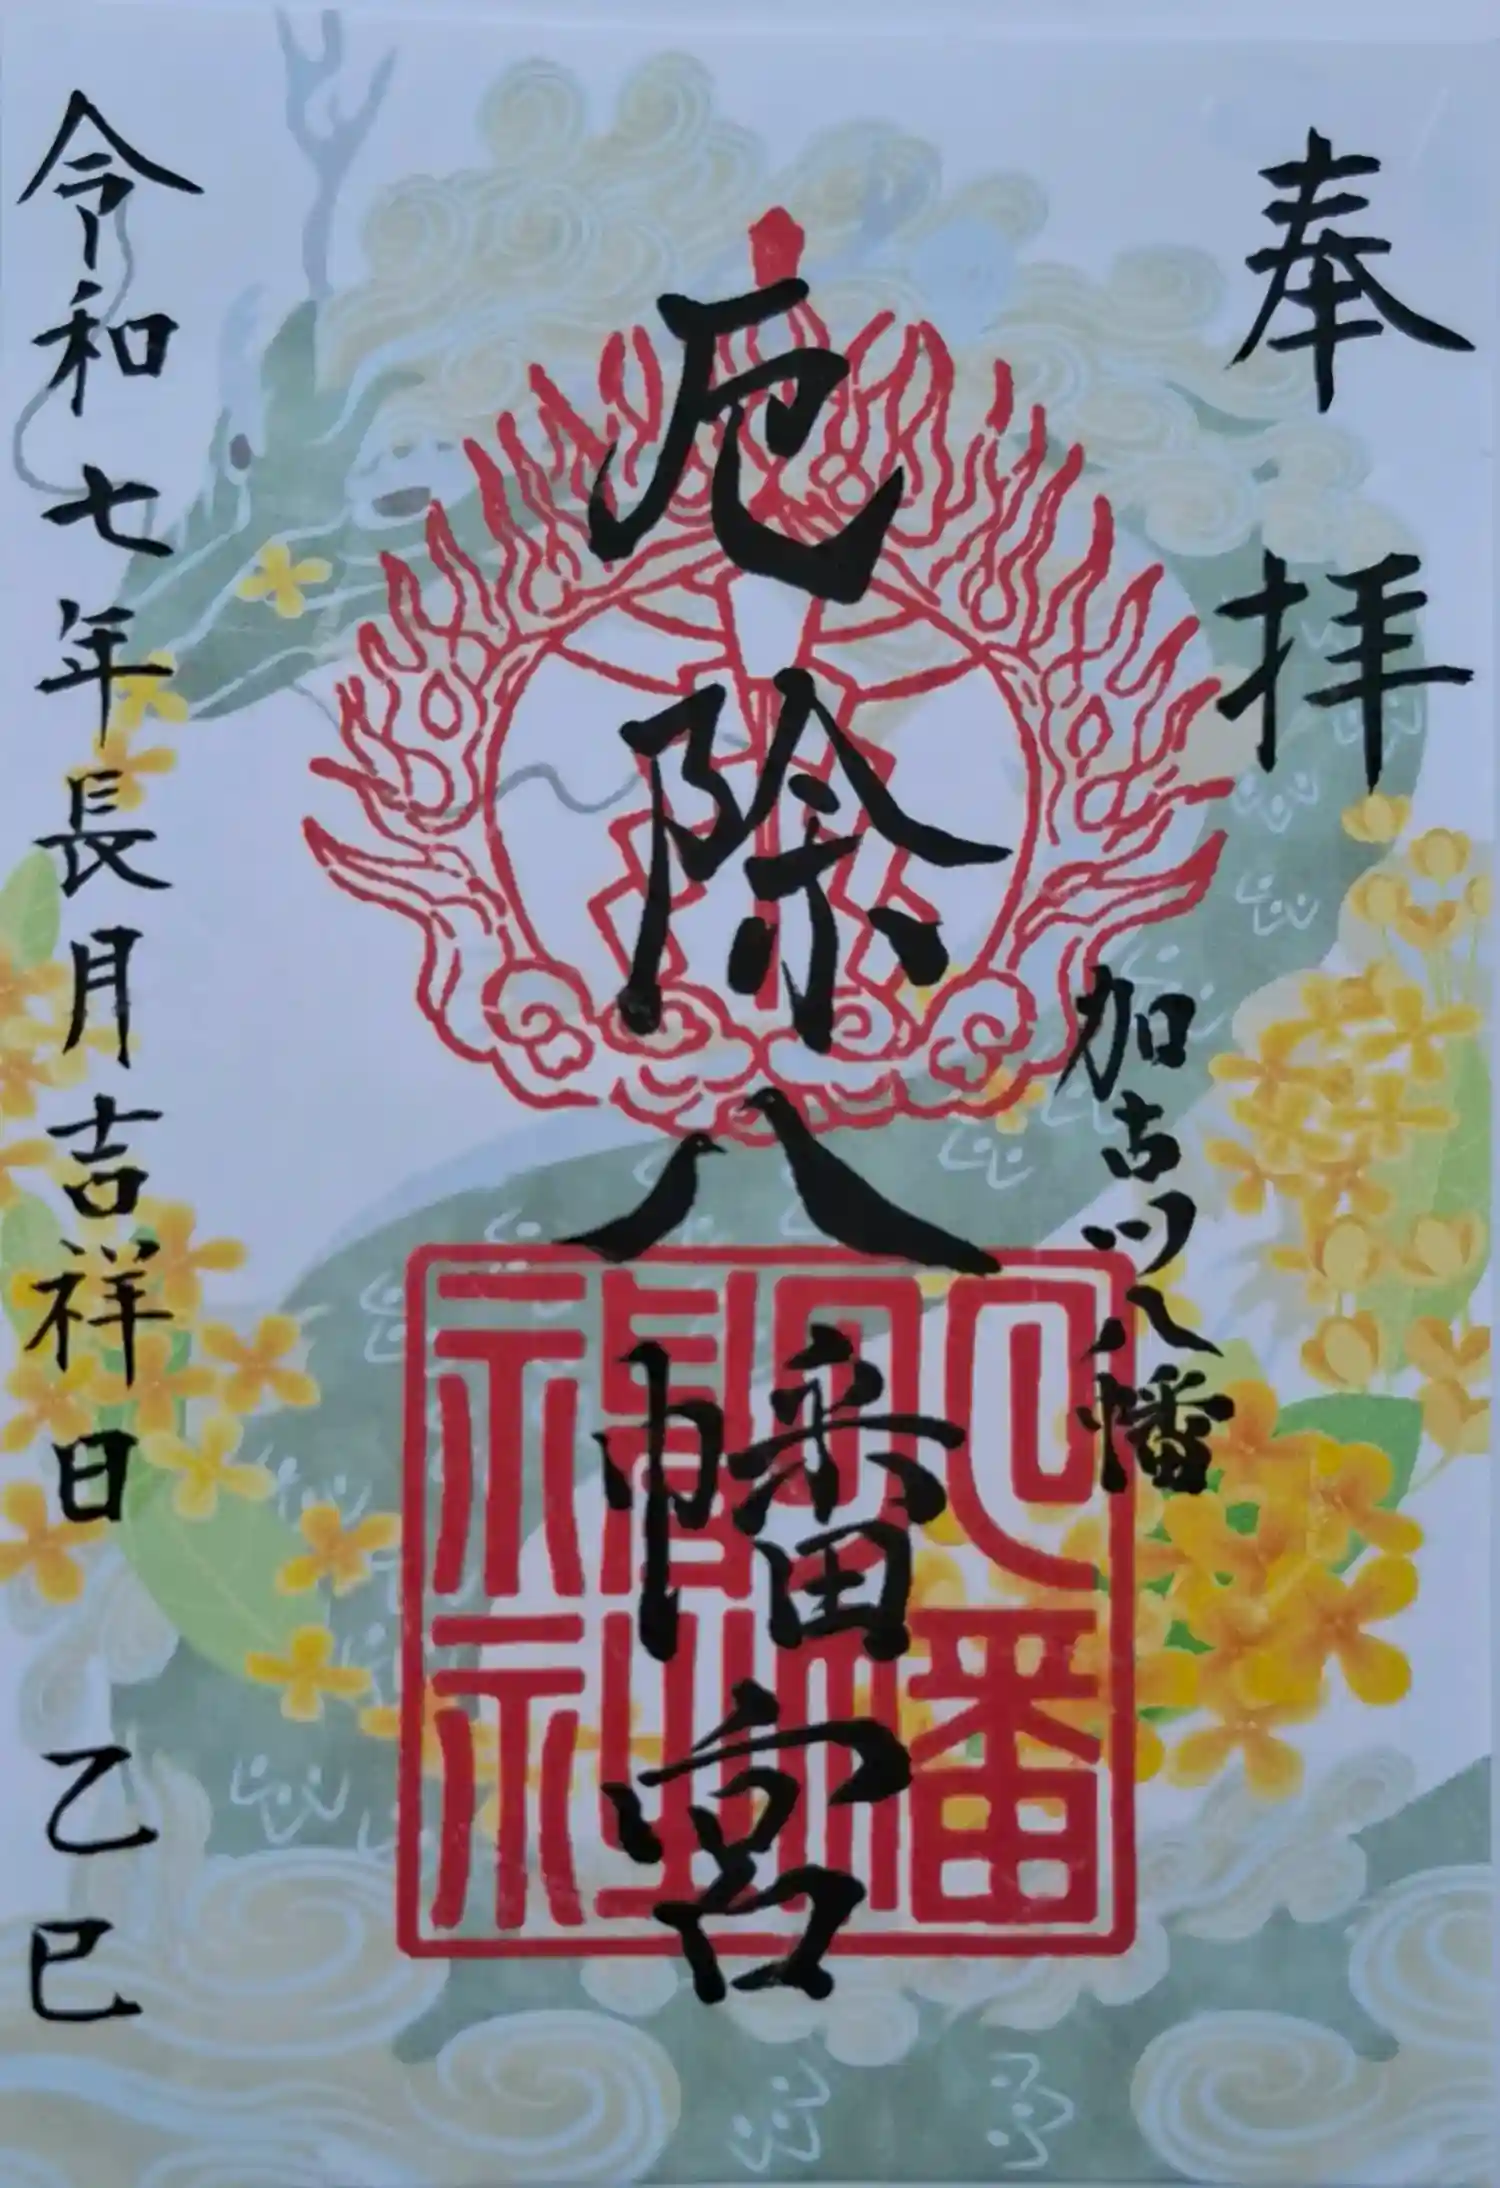 奉拝
加古川八幡
厄除八幡宮
令和七年長月吉祥日 乙巳